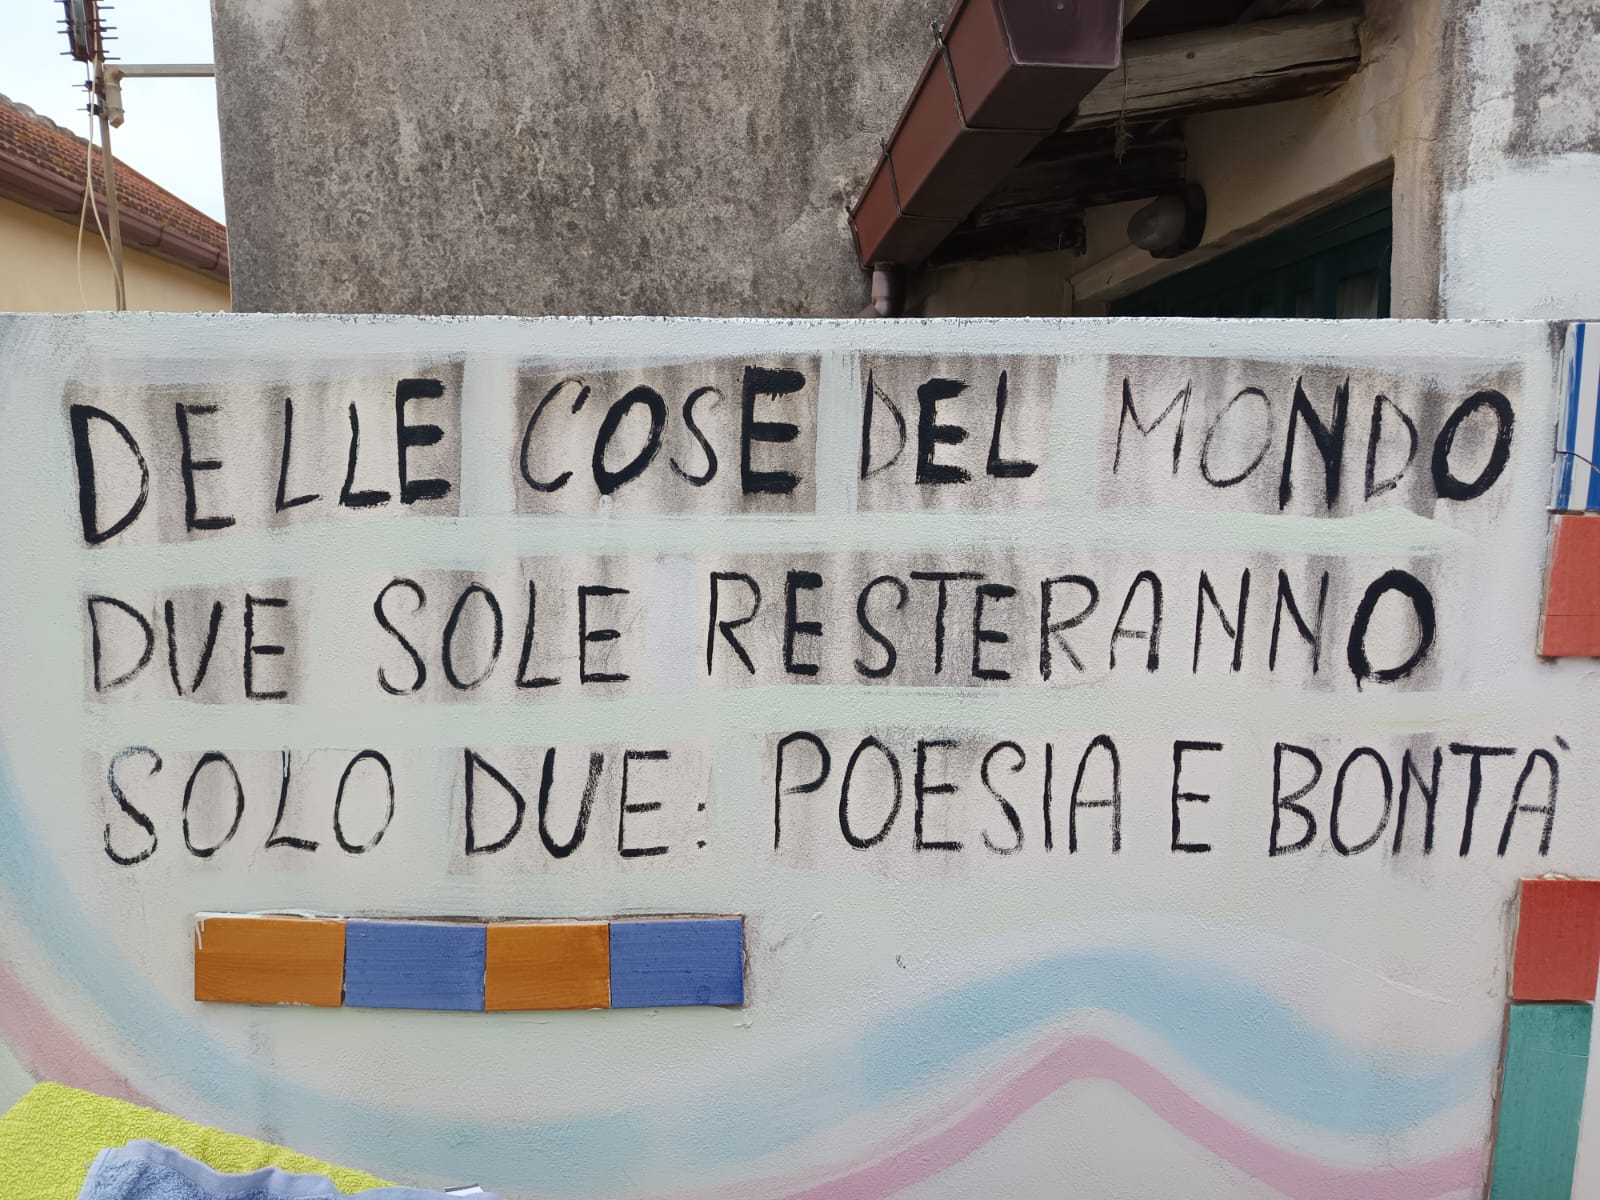 DELLE COSE DEL MONDO
DUE SOLE RESTERANNO
SOLO DUE: POESIA E BONTÀ